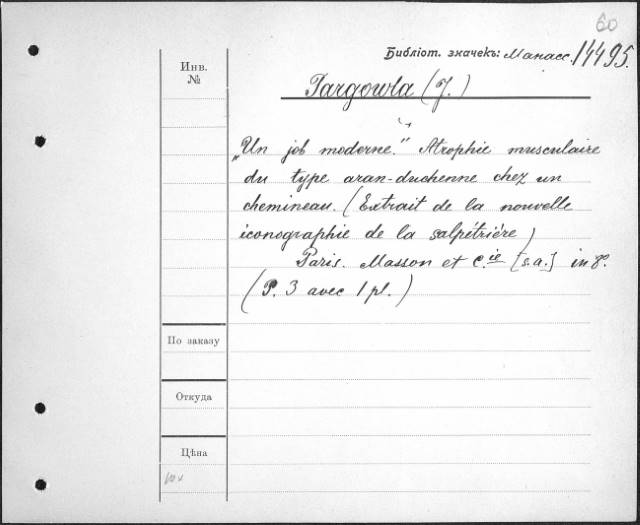 60
Библіот. значекъ: Манасс. 14495.
Инв.
№
Targowla (J.)
„Un job moderne." Atrophie musculaire
du type aran-duchenne chez un
chemineau. (Extrait de la nouvelle
iconographie de la salpétrière)
Paris. Masson et C.ie [s.a.] in 8°.
(P. 3 avec 1 pl.)
По заказу
Откуда
Цѣна